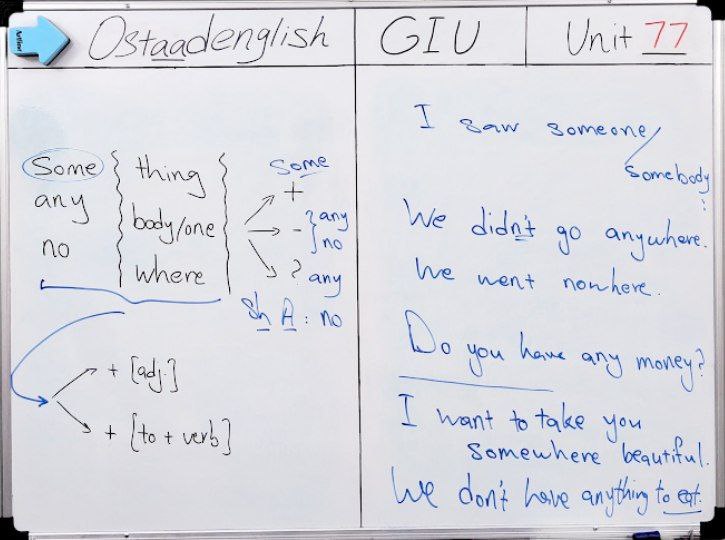 Artline
Ostaadenglish
GIU
Unit 77
Some
any
no
thing
body/one
where
some
+
- any
no
? any
Sh A : no
+ [adj.]
+ [to + verb]
I saw someone/
somebody
We didn't go anywhere.
We went nowhere.
Do you have any money?
I want to take you
somewhere beautiful.
We don't have anything to eat.